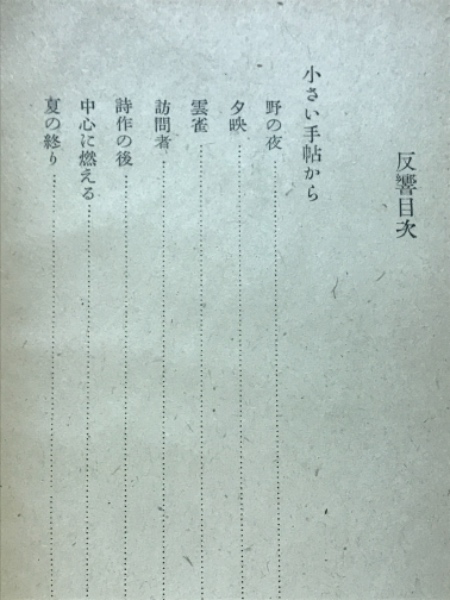 反響目次
小さい手帖から
野の夜
夕映
雲雀
訪問者
詩作の後
中心に燃える
夏の終り